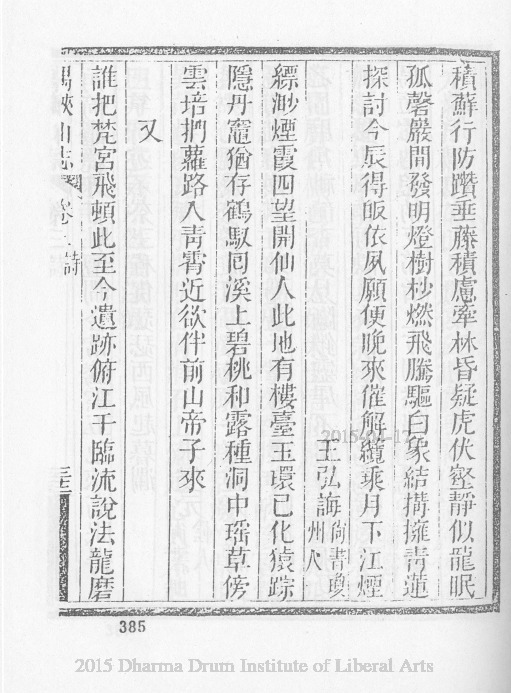 積蘚行防躓垂藤積慮牽林昏疑虎伏壑靜似龍眠
孤磬嚴間發明燈樹杪燃飛騰驅白象結搆擁青蓮
探討今晨得皈依夙願便晚來催解纜乘月下江煙
王弘誨尚書瓊州人
縹緲煙霞四望開仙人此地有樓臺玉環已化猿踪
隱丹竈猶存鶴馭囘溪上碧桃和露種洞中瑶草傍
雲培捫蘿路入靑霄近欲伴前山帝子來
又
誰把梵宮飛頓此至今遺跡俯江干臨流說法龍磨
禺峽山志 卷之 詩
2015-04-17
385
2015 Dharma Drum Institute of Liberal Arts